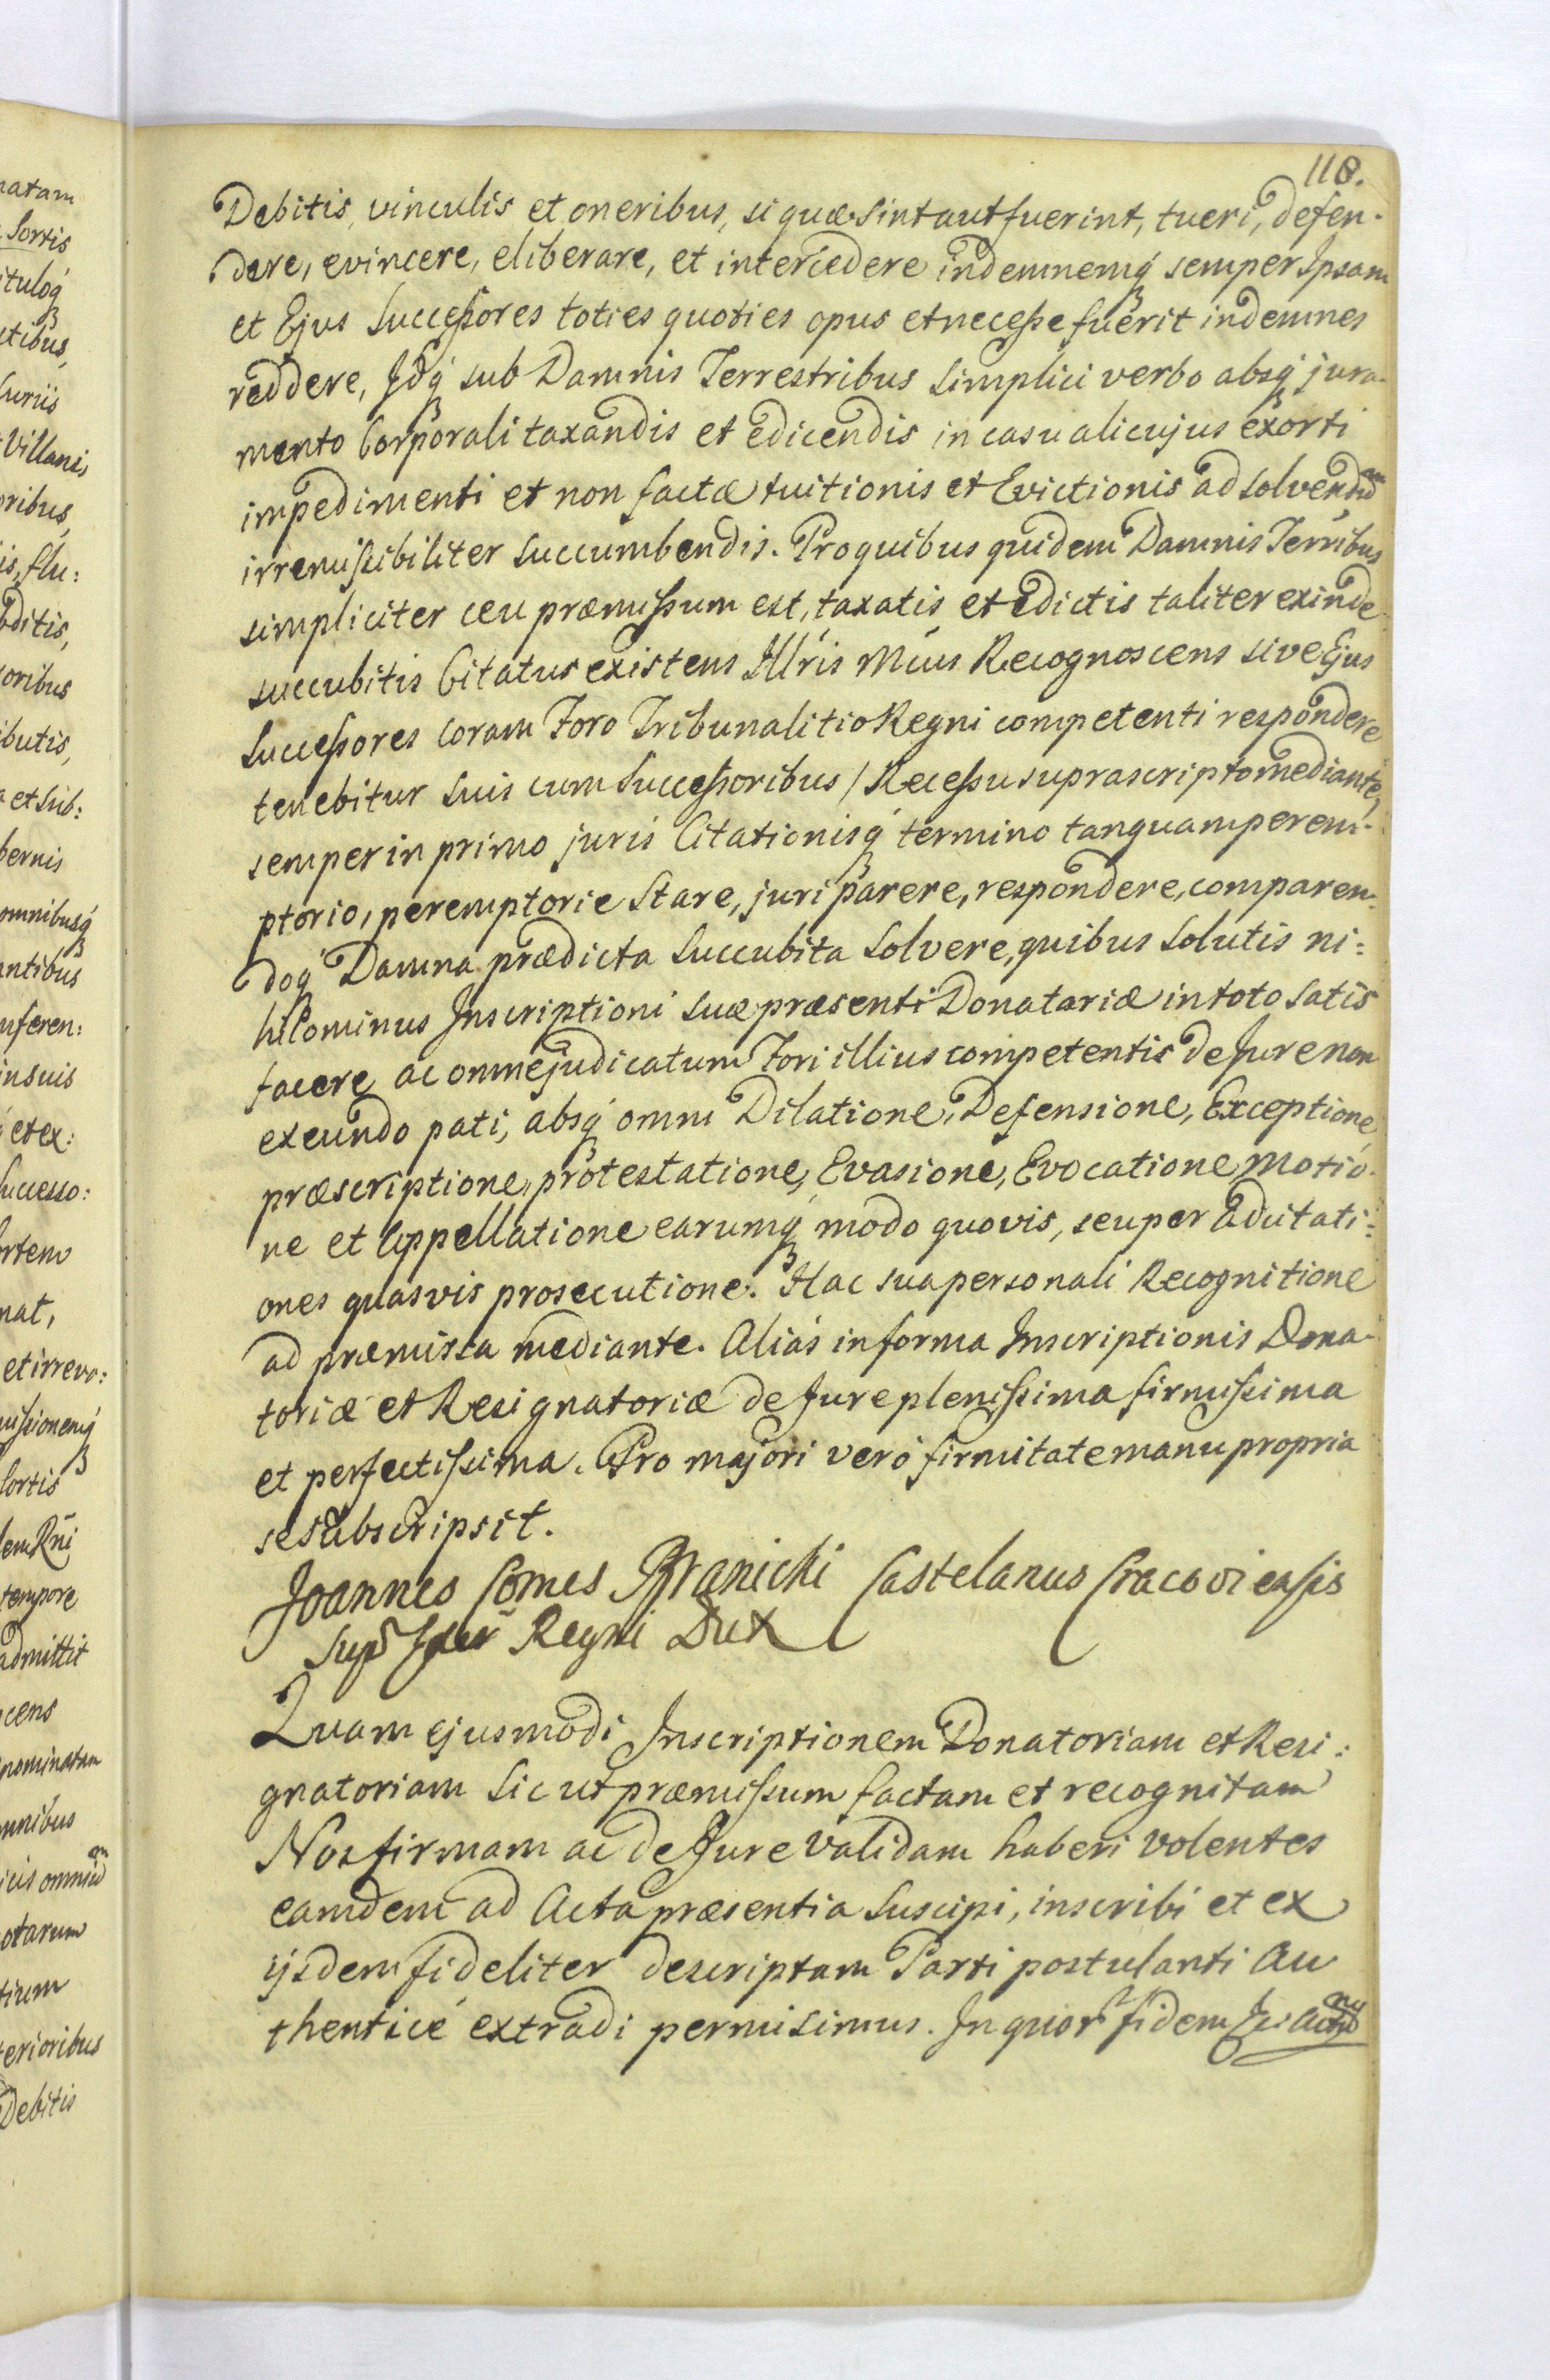 118.
Debitis, vinculis et oneribus, si quæ sint aut fuerint, tueri, defen-
dere, evincere, eliberare, et intercedere indemnemq́ semper Ipsam
et Ejus Successores toties quoties opus et necesse fuerit indemnes
reddere, Idq́ sub Damnis Terrestribus simplici verbo absq́ jura-
mento Corporali taxandis et edicendis in casu alicujus exorti
impedimenti et non factæ tuitionis et Evictionis ad solvendũ
irremissibiliter succumbendis. Pro quibus quidem Damnis Terribus
simpliciter ceu præmissum est, taxatis et edictis taliter exinde
succubitis Citatus existens Illris Mcus Recognoscens sive Ejus
Successores coram Foro Tribunalitio Regni competenti respondere
tenebitur suis cum Successoribus / Recessu suprascripto mediante,
semper in primo juris Citationisq́ termino tanquam perem-
ptorio, peremptorie stare, juri parere, respondere, comparen-
doq́ Damna prædicta succubita solvere, quibus solutis ni=
hilominus Inscriptioni suæ præsenti Donatariæ in toto satis
facere ac omne judicatum Fori illius competentis de Jure non
exeundo pati, absq́ omni Dilatione, Defensione, Exceptione,
præscriptione, protestatione, Evasione, Evocatione, Motio-
ne et Appellatione earumq́ modo quovis, seu per aductati=
ones quasvis prosecutione. Hac sua personali Recognitione
ad præmissa mediante. Aliás in forma Inscriptionis Dona-
toriæ et Resignatoriæ de Jure plenissima firmissima
et perfectissima. Pro majori veró firmitate manu propria
se subscripsit.
Joannes Comes Branicki Castelanus Cracoviensis
Regni Dux
Quam ejusmodi Inscriptionem Donatoriam et Resi=
gnatoriam sic ut præmissum factam et recognitam
Nos firmam ac de Jure validam haberi volentes
eamdem ad Acta præsentia suscipi, inscribi et ex
ijsdem fideliter descriptam Parti postulanti Au
thenticé extradi permisimus. In quor fidem
natam
Sortis
itulóq́
ntibus,
Curiis
Villanis
oribus,
is, flu:
ditis,
oribus
ibutis,
et sub:
bernis
omnibusq́
antibus
nferen:
in suis
et ex:
Successo:
ortem
nat,
et irrevo:
missionemq́
Sortis
dem Rni
tempore
admittit
scens
nominatam
mnibus
icis omnium
otarum
tium
terioribus
Debitis